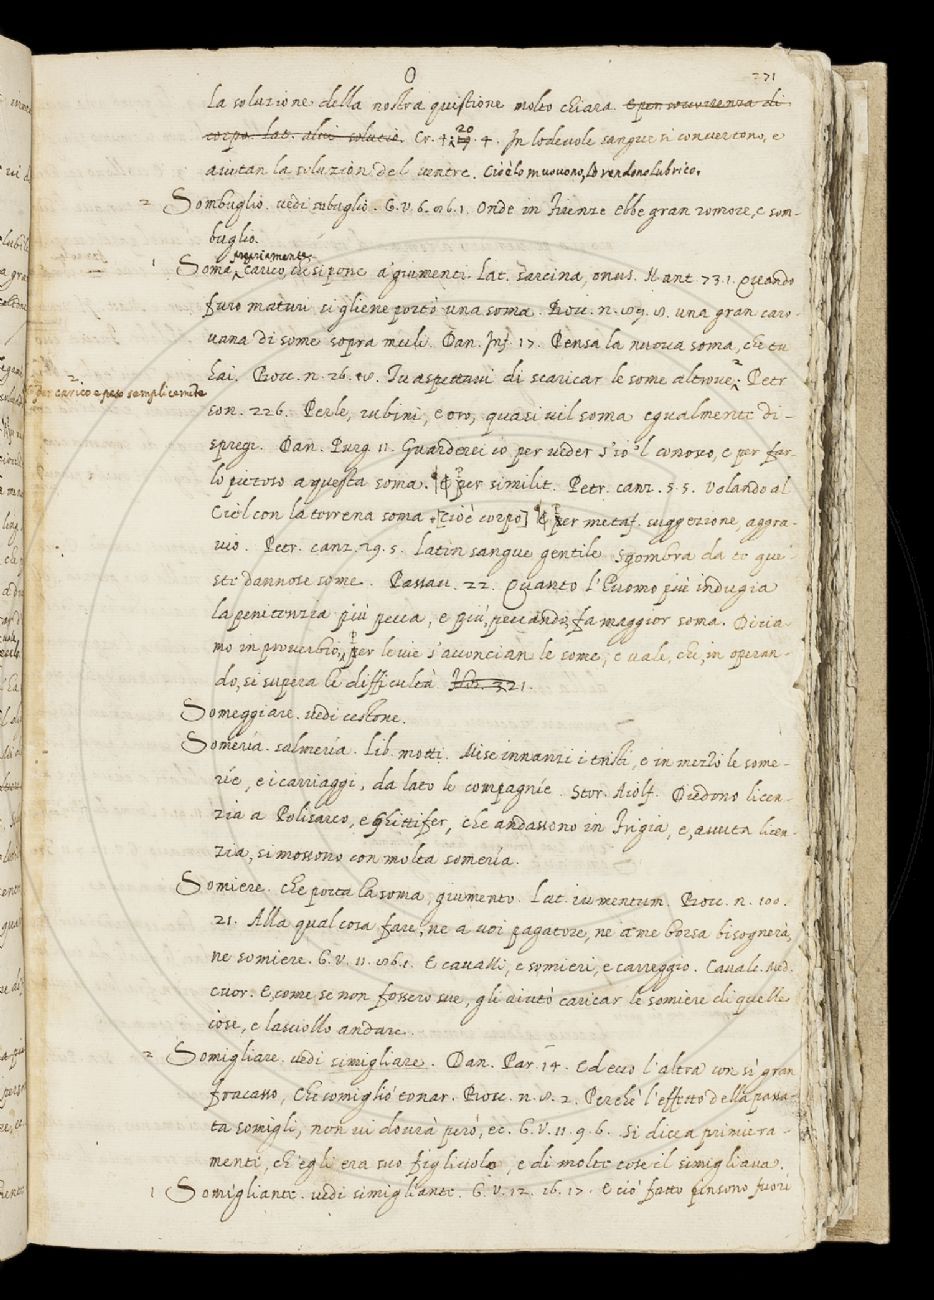 O
271
la soluzione della nostra quistione molto chiara. E per soccorrenza di
corpo. lat. alvi solutio. Cr. 4. 19 20. 4. In lodevole sangue si convertono, e
aiutan la soluzion del ventre. Cioè lo muovono, lo rendono lubrico.
2 Sombuglio. vedi subuglio. G.V.6.26.1. Onde in Firenze ebbe gran romore, e som-
buglio.
propriamente
1 Soma, carico, che si pone a giumenti. Lat. sarcina, onus. N. ant. 73.1. Quando
furo maturi si gliene portò una soma. Bocc. n. 89. 8. una gran caro-
vana di some sopra muli. Dan. Inf. 17. Pensa la nuova soma, che tu
hai. Bocc. n. 26. 18. Tu aspettavi di scaricar le some altrove, 2 Petr.
2 per carico e peso semplicemēte
son. 226. Perle, rubini, e oro, quasi vil soma egualmente di-
spregi. Dan. Purg. 11. Guardere' io, per veder s'io 'l conosco, e per far-
lo pietoso a questa soma. ¶ per similit. Petr. canz. 5. 5. Volando al
Ciel con la terrena soma [cioè corpo] ¶ per metaf. suggezione, aggra-
vio. Petr. canz. 29. 5. Latin sangue gentile Sgombra da te que-
ste dannose some. Passav. 22. Quanto l'huomo più indugia
la penitenzia più pecca, e più, peccando, fa maggior soma. Dicia-
mo in proverbio, per le vie s'acconcian le some, e vale, che, in operan-
do, si supera le difficultà. Flos. 321.
Someggiare. vedi cestone.
Someria. salmeria. Lib. motti. Mise innanzi i tristi, e in mezzo le some-
rie, e i carriaggi, da lato le compagnie. Stor. Aiolf. Diedono licen-
zia a Polisarco, e Ghittifer, che andassono in Frigia, e, avuta licen-
zia, si mossono con molta someria.
Somiere. che porta la soma, giumento. Lat. iumentum. Bocc. n. 100.
21. Alla qual cosa fare, ne a voi pagatore, ne a me borsa bisognerà,
ne somiere. G.V. 11. 26.1. E cavalli, e somieri, e carreggio. Cavalc. Med.
cuor. E, come se non fossero sue, gli aiutò caricar le somiere di quelle
cose, e lasciollo andare.
2 Somigliare. vedi simigliare. Dan. Par. 14. Ed ecco l'altra con sì gran
fracasso, Che somigliò tonar. Bocc. n. 8. 2. Perchè l'effetto della passa-
ta somigli, non vi dovrà però, ec. G.V. 11. 9. 6. Si dicea primiera-
mente, ch'egli era suo figliuolo, e di molte cose il simigliava.
1 Somigliante. vedi simigliante. G.V. 12. 16. 17. E ciò fatto pinsono fuori